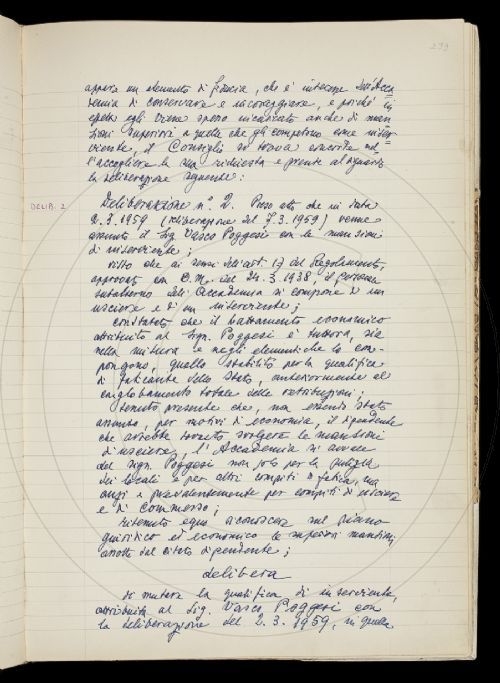 299
appare un elemento di fiducia, che è interesse dell'Acca=
demia di conservare e incoraggiare, e poiché in
epoca egli viene spesso incaricato anche di man
sioni superiori a quelle che gli competono come inser=
viente, il Consiglio si trova concorde nel=
l'accogliere la sua richiesta e prende al riguardo
la deliberazione seguente:
DELIB. 2
Deliberazione n° 2. Preso atto che in data
2.3.1959 (deliberazione del 7.3.1959) venne
assunto il Sig. Vasco Poggesi con le mansioni
di inserviente;
visto che ai sensi dell'art. 17 del Regolamento,
approvato con D.M. del 24.3.1938, il personale
subalterno dell'Accademia si compone di un
usciere e di un inserviente;
constatato che il trattamento economico
attribuito al Sign. Poggesi è tuttora, sia
nella misura e negli elementi che lo com-
pongono, quello stabilito per la qualifica
di faticante dello Stato, anteriormente al
conglobamento totale delle retribuzioni;
tenuto presente che, non essendo stato
assunto, per motivi di economia, il dipendente
che avrebbe dovuto svolgere le mansioni
di usciere, l'Accademia si avvale
del Sign. Poggesi non solo per la pulizia
dei locali e per altri compiti di fatica, ma
anzi e prevalentemente per compiti di usciere
e di commesso;
ritenuto equo riconoscere sul piano
giuridico ed economico le superiori mansioni
assolte dal citato dipendente;
delibera
di mutare la qualifica di inserviente,
attribuita al Sig. Vasco Poggesi con
la deliberazione del 2.3.1959, in quella